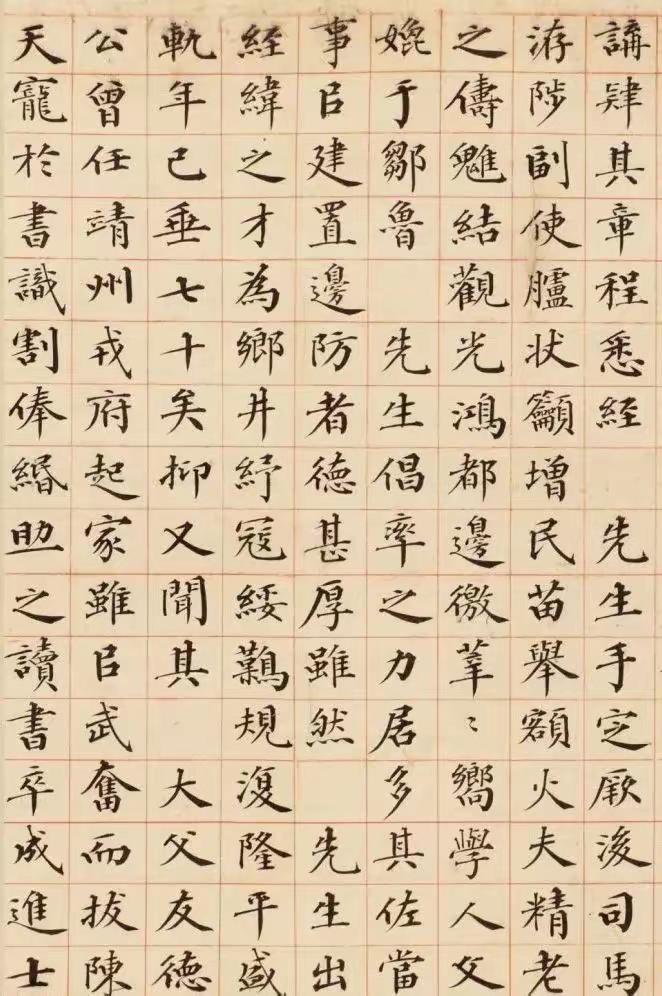 講肄其章程悉經　先生手定厥後司馬
洊陟副使臚狀籲增民苗舉額火夫精老
之儔魋結觀光鴻都邊徼莘〻嚮學人文
娩于鄒魯　先生倡率之力居多其佐當
事㠯建置邊防者德甚厚雖然　先生出
經緯之才為鄉井紓寇綏難規復隆平盛
軌年已垂七十矣抑又聞其　大父友德
公曾任靖州戎府起家雖㠯武奮而拔陳
天寵於書識割俸緡助之讀書卒成進士